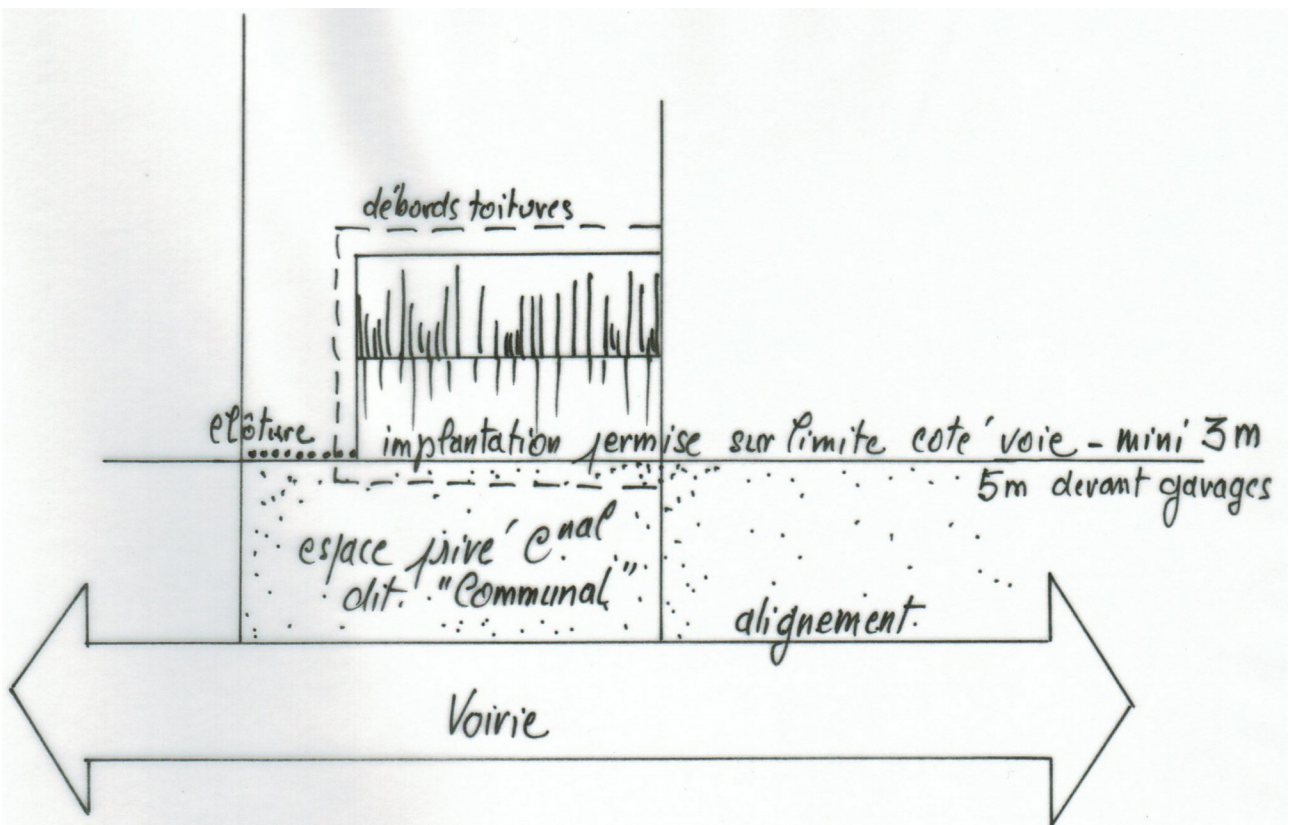 débords toitures
clôture
implantation permise sur limite coté voie - mini 3m
5m devant garages
espace privé Cnal
dit "Communal"
alignement.
Voirie